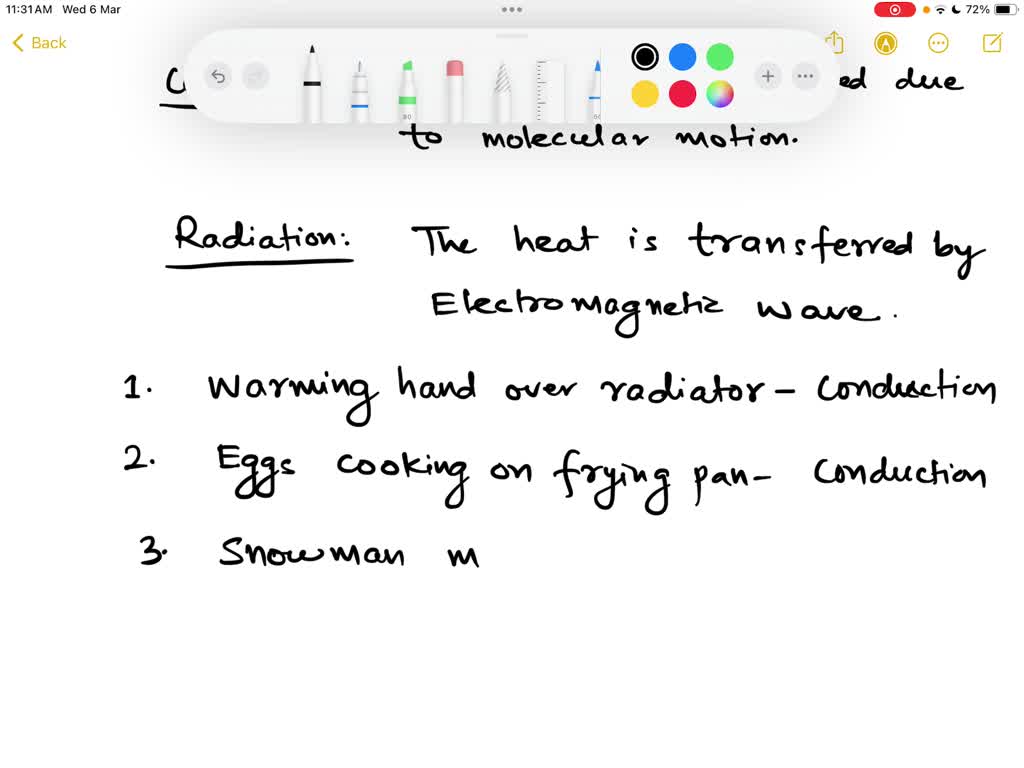 11:31 AM Wed 6 Mar
72%
Back
ed due
to molecular motion.
Radiation: The heat is transferred by
Electromagnetic wave.
1. Warming hand over radiator - Conduction
2. Eggs cooking on frying pan - Conduction
3. Snowman m